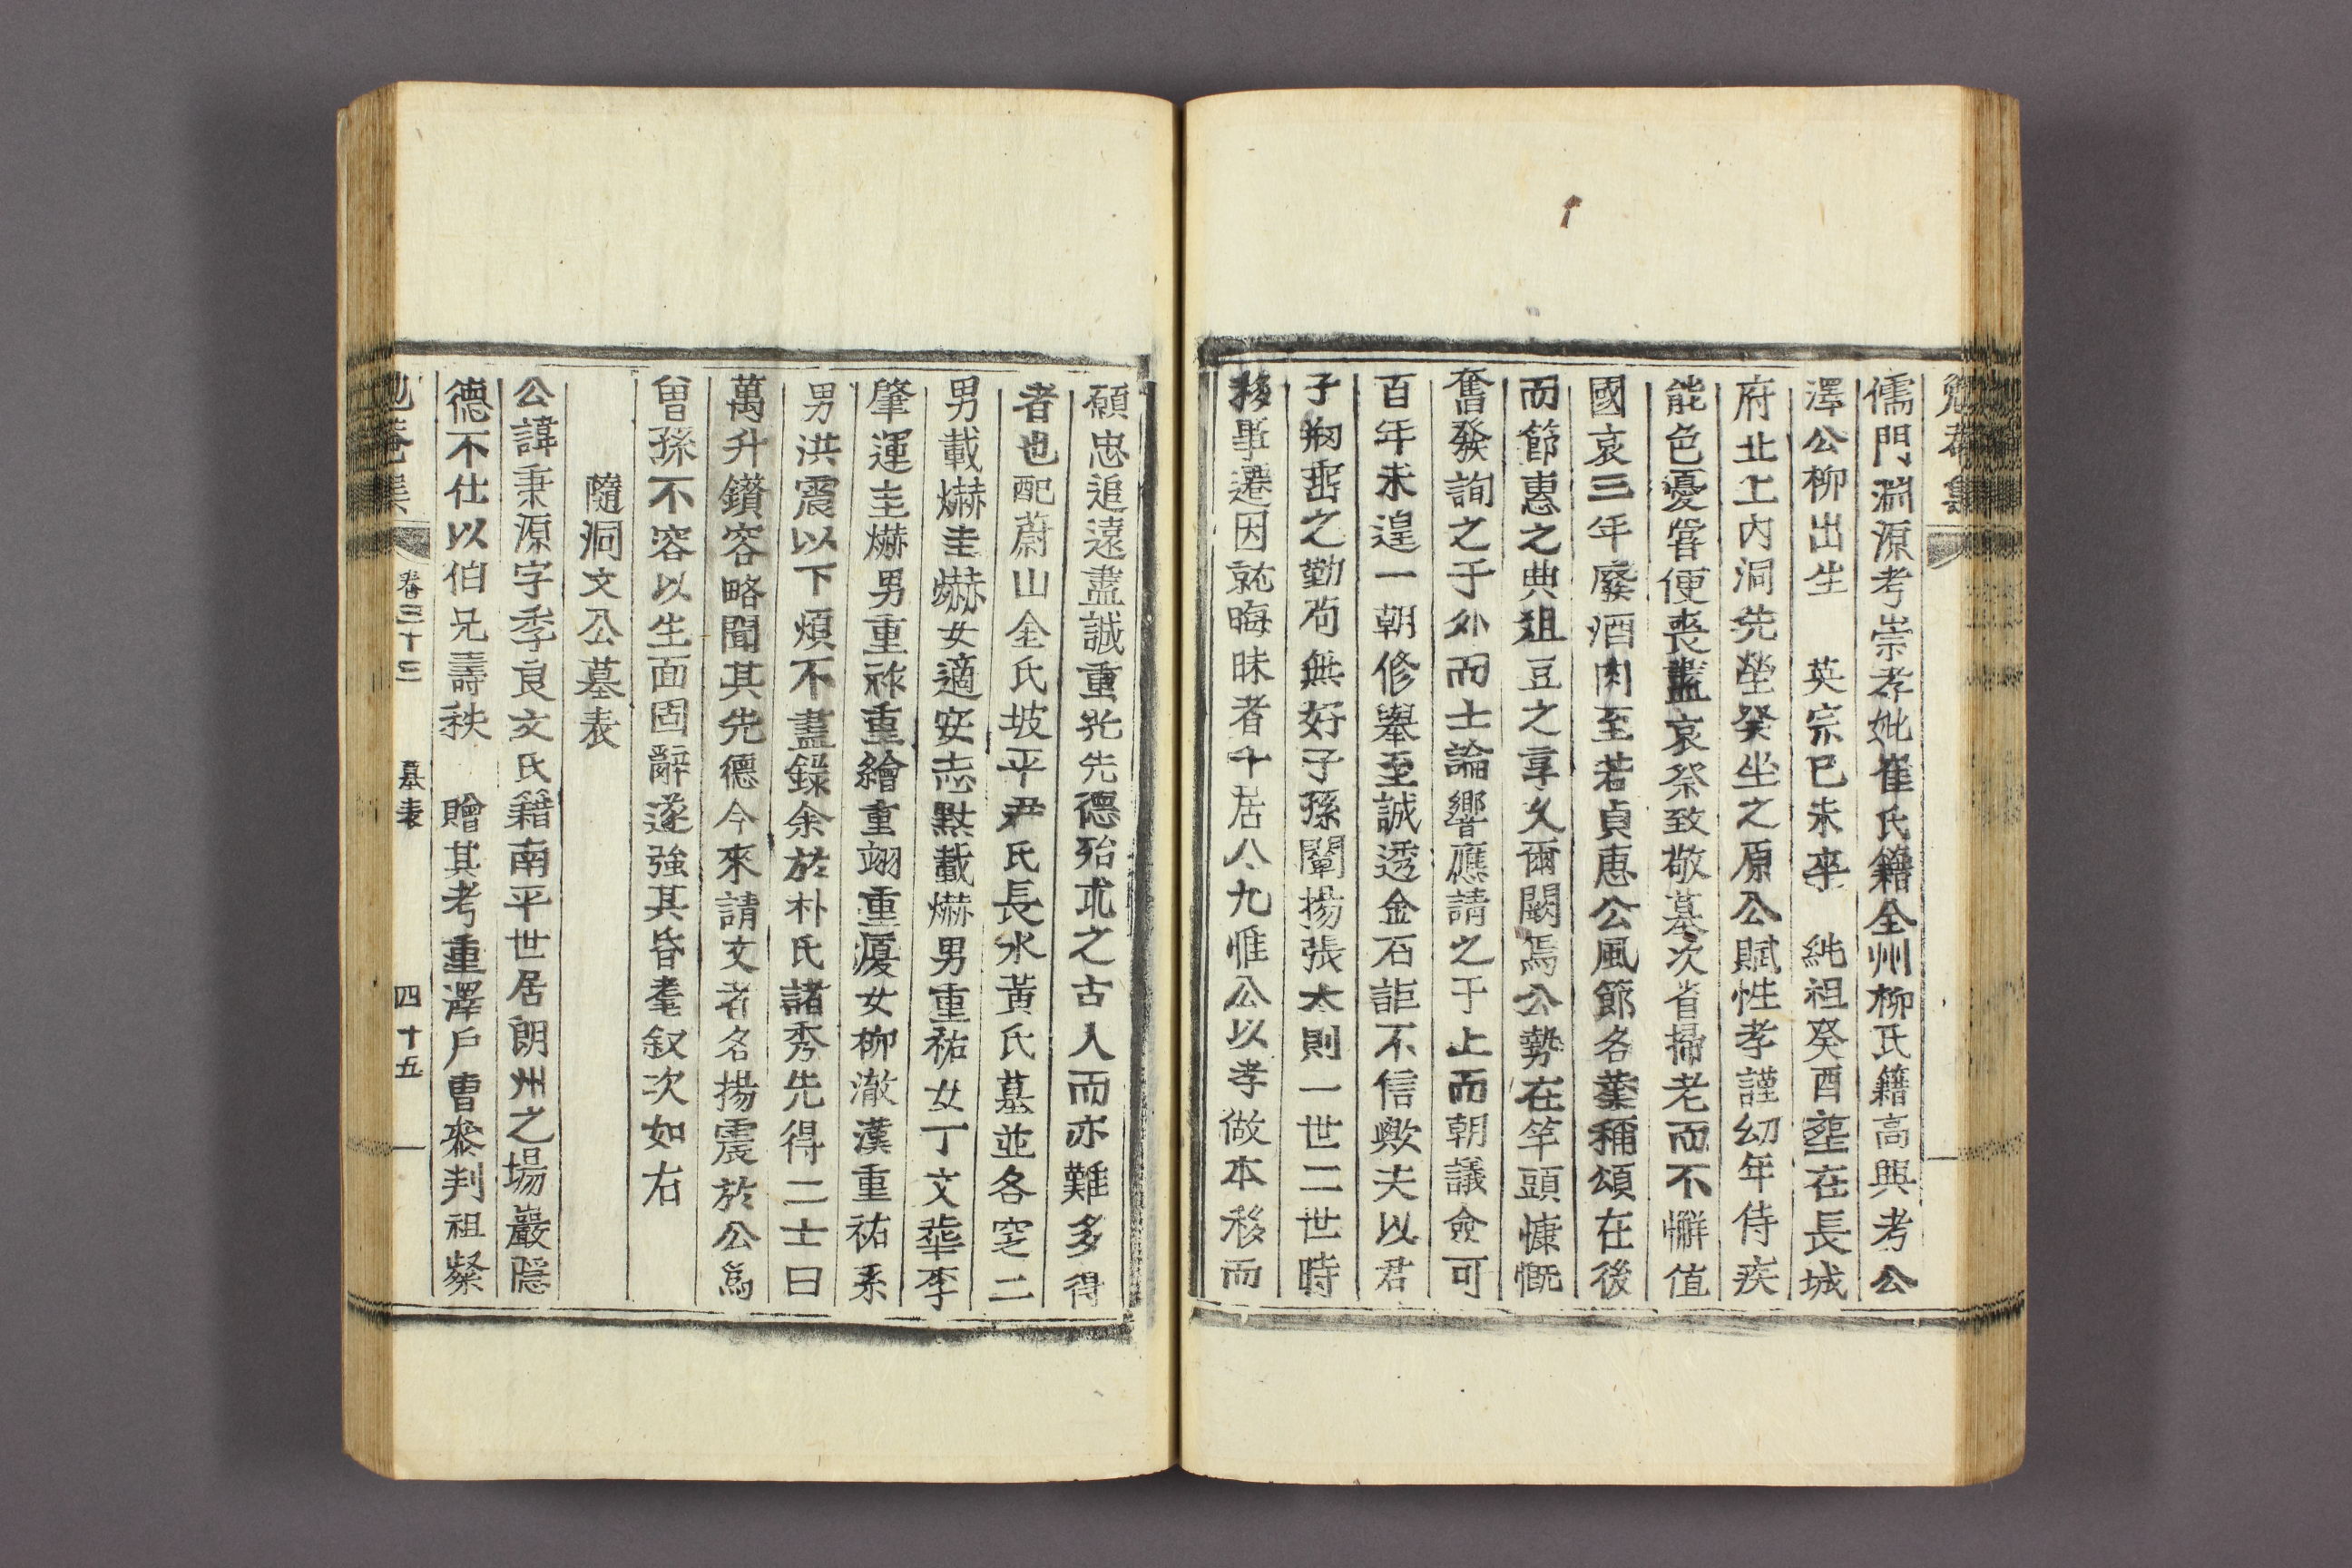 儒門淵源考崇孝妣崔氏籍全州柳氏籍高興考公
澤公柳出生 英宗已未卒 純祖癸酉塟在長城
府北上內洞先塋癸坐之原公賦性孝謹幼年侍疾
能色憂嘗便喪盡哀祭致敬墓次省掃老而不懈值
國哀三年廢酒肉至若貞惠公風節名葉稱頌在後
而節惠之典俎豆之享久爾闕焉公勢在竿頭慷慨
奮發詢之于外而士論響應請之于上而朝議僉可
百年未遑一朝修擧至誠透金石詎不信歟夫以君
子之勤苟無好子孫闡揚張大則一世二世時
移事遷因就晦昧者十居八九惟公以孝做本移而
願忠追遠盡誠重光先德殆求之古人而亦難多得
者也配蔚山金氏坡平尹氏長水黃氏墓並各窆二
男載爀圭爀女適安志黙載爀男重祐女丁文華李
肇運圭爀男重祚重繪重翊重廈女柳澈漢重祐系
男洪震以下煩不盡錄余於朴氏諸秀先得二士曰
萬升鑽容略聞其先德今來請文者名揚震於公爲
曾孫不容以生面固辭遂強其昏耄叙次如右
隨洞文公墓表
公諱秉源字季良文氏籍南平世居朗州之場巖隱
德不仕以伯兄壽秩 贈其考重澤戶曹叅判祖粲
卷三十三 墓表 四十五